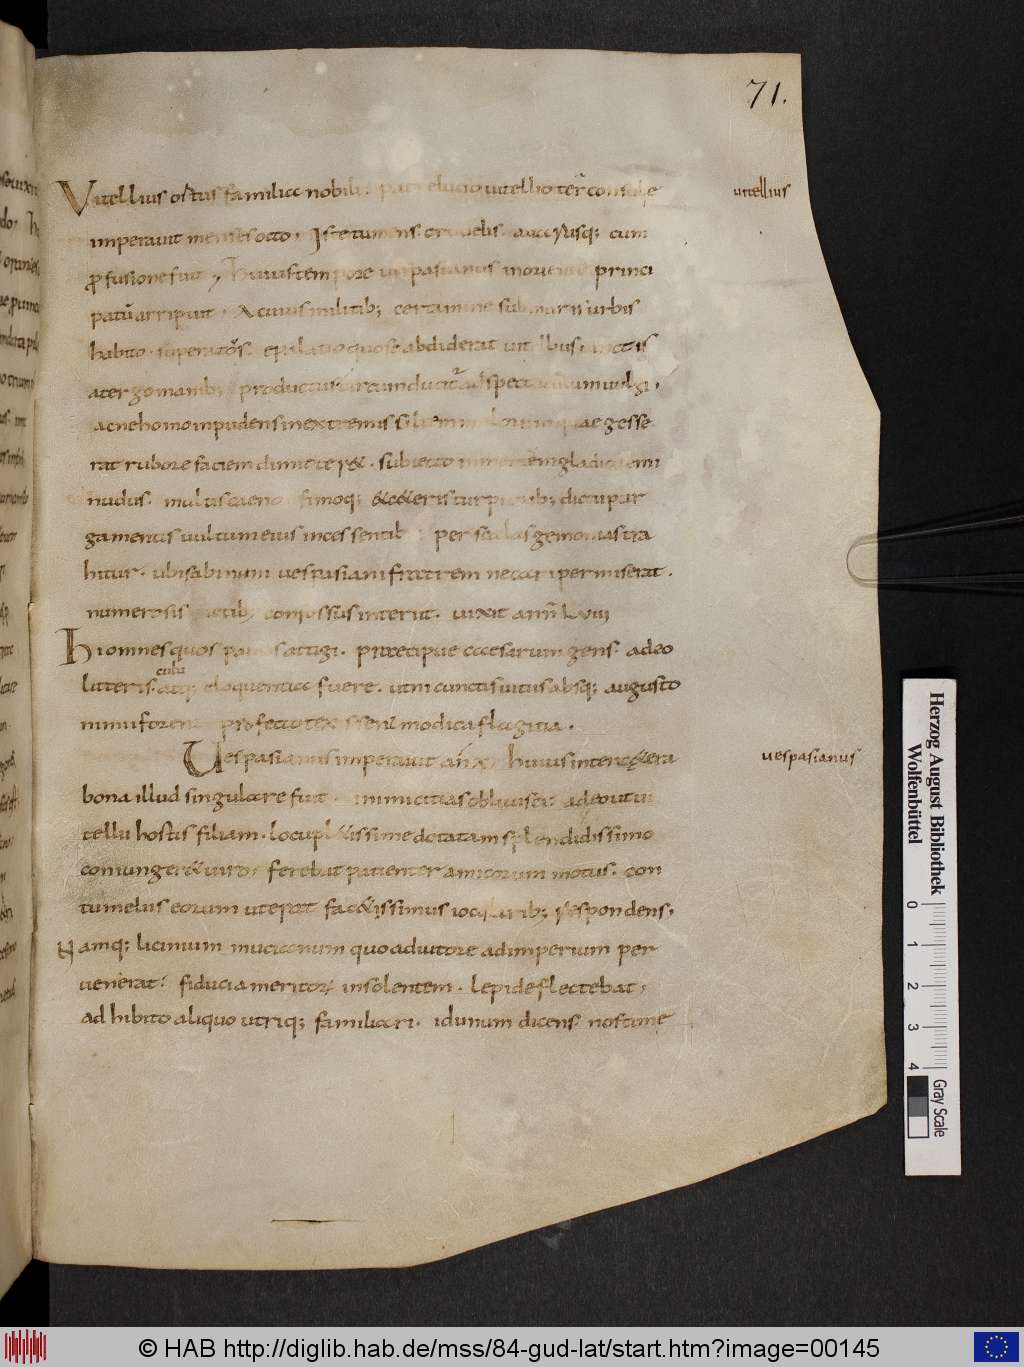 71.
Vitellius ortus familia nobili. patre lucio vitellio ter consule
vitellius
imperavit menses octo. Iste tumens crudelis. avarusq; cum
profusione fuit. Huius tempore vespasianus in oriente princi
patu arripuit. A cuius militib; certamine sub muris urbis
habito. superatos. e palatio quo se abdiderat vitellius vinctis
a tergo manib; productus circumducitur ad spectaculum vulgi.
ac ne homo inpudens in extremis saltem malorum quae gesse
rat rubore faciem dimitter&. subiecto in mentem gladio semi
nudus. multis caeno fimoq; & c&eris turpi
gamentis vultum eius incessentib; per scalas gemonias tra
hitur. ubi sabinum vespasiani fratrem necari permiserat.
numerosis ictib; confossus interiit. vixit ann LVIII
Hi omnes quos paucis attigi. praecipue caesarum gens adeo
litteris. culti atq; eloquentia fuere. ut ni cunctis vitiis absq; augusto
nimii forent profecto texissent modica flagitia.
Vespasianus imperavit ann x. huius inter c&era
vespasianus
bona illud singulare fuit. inimicitias oblivisci. adeo ut vi
tellii hostis filiam. locupl&issime dotatam splendidissimo
coniunger& viro. ferebat patienter amicorum motus. con
tumeliis eorum ut erat fac&issimus iocularib; respondens.
Namq; licinium mucianum quo adiutore ad imperium per
venerat. fiducia meritor insolentem. lepide flectebat.
adhibito aliquo utriq; familiari. id unum dicens nosti me
Herzog August Bibliothek
Wolfenbüttel
0 1 2 3 4
Gray Scale
© HAB http://diglib.hab.de/mss/84-gud-lat/start.htm?image=00145